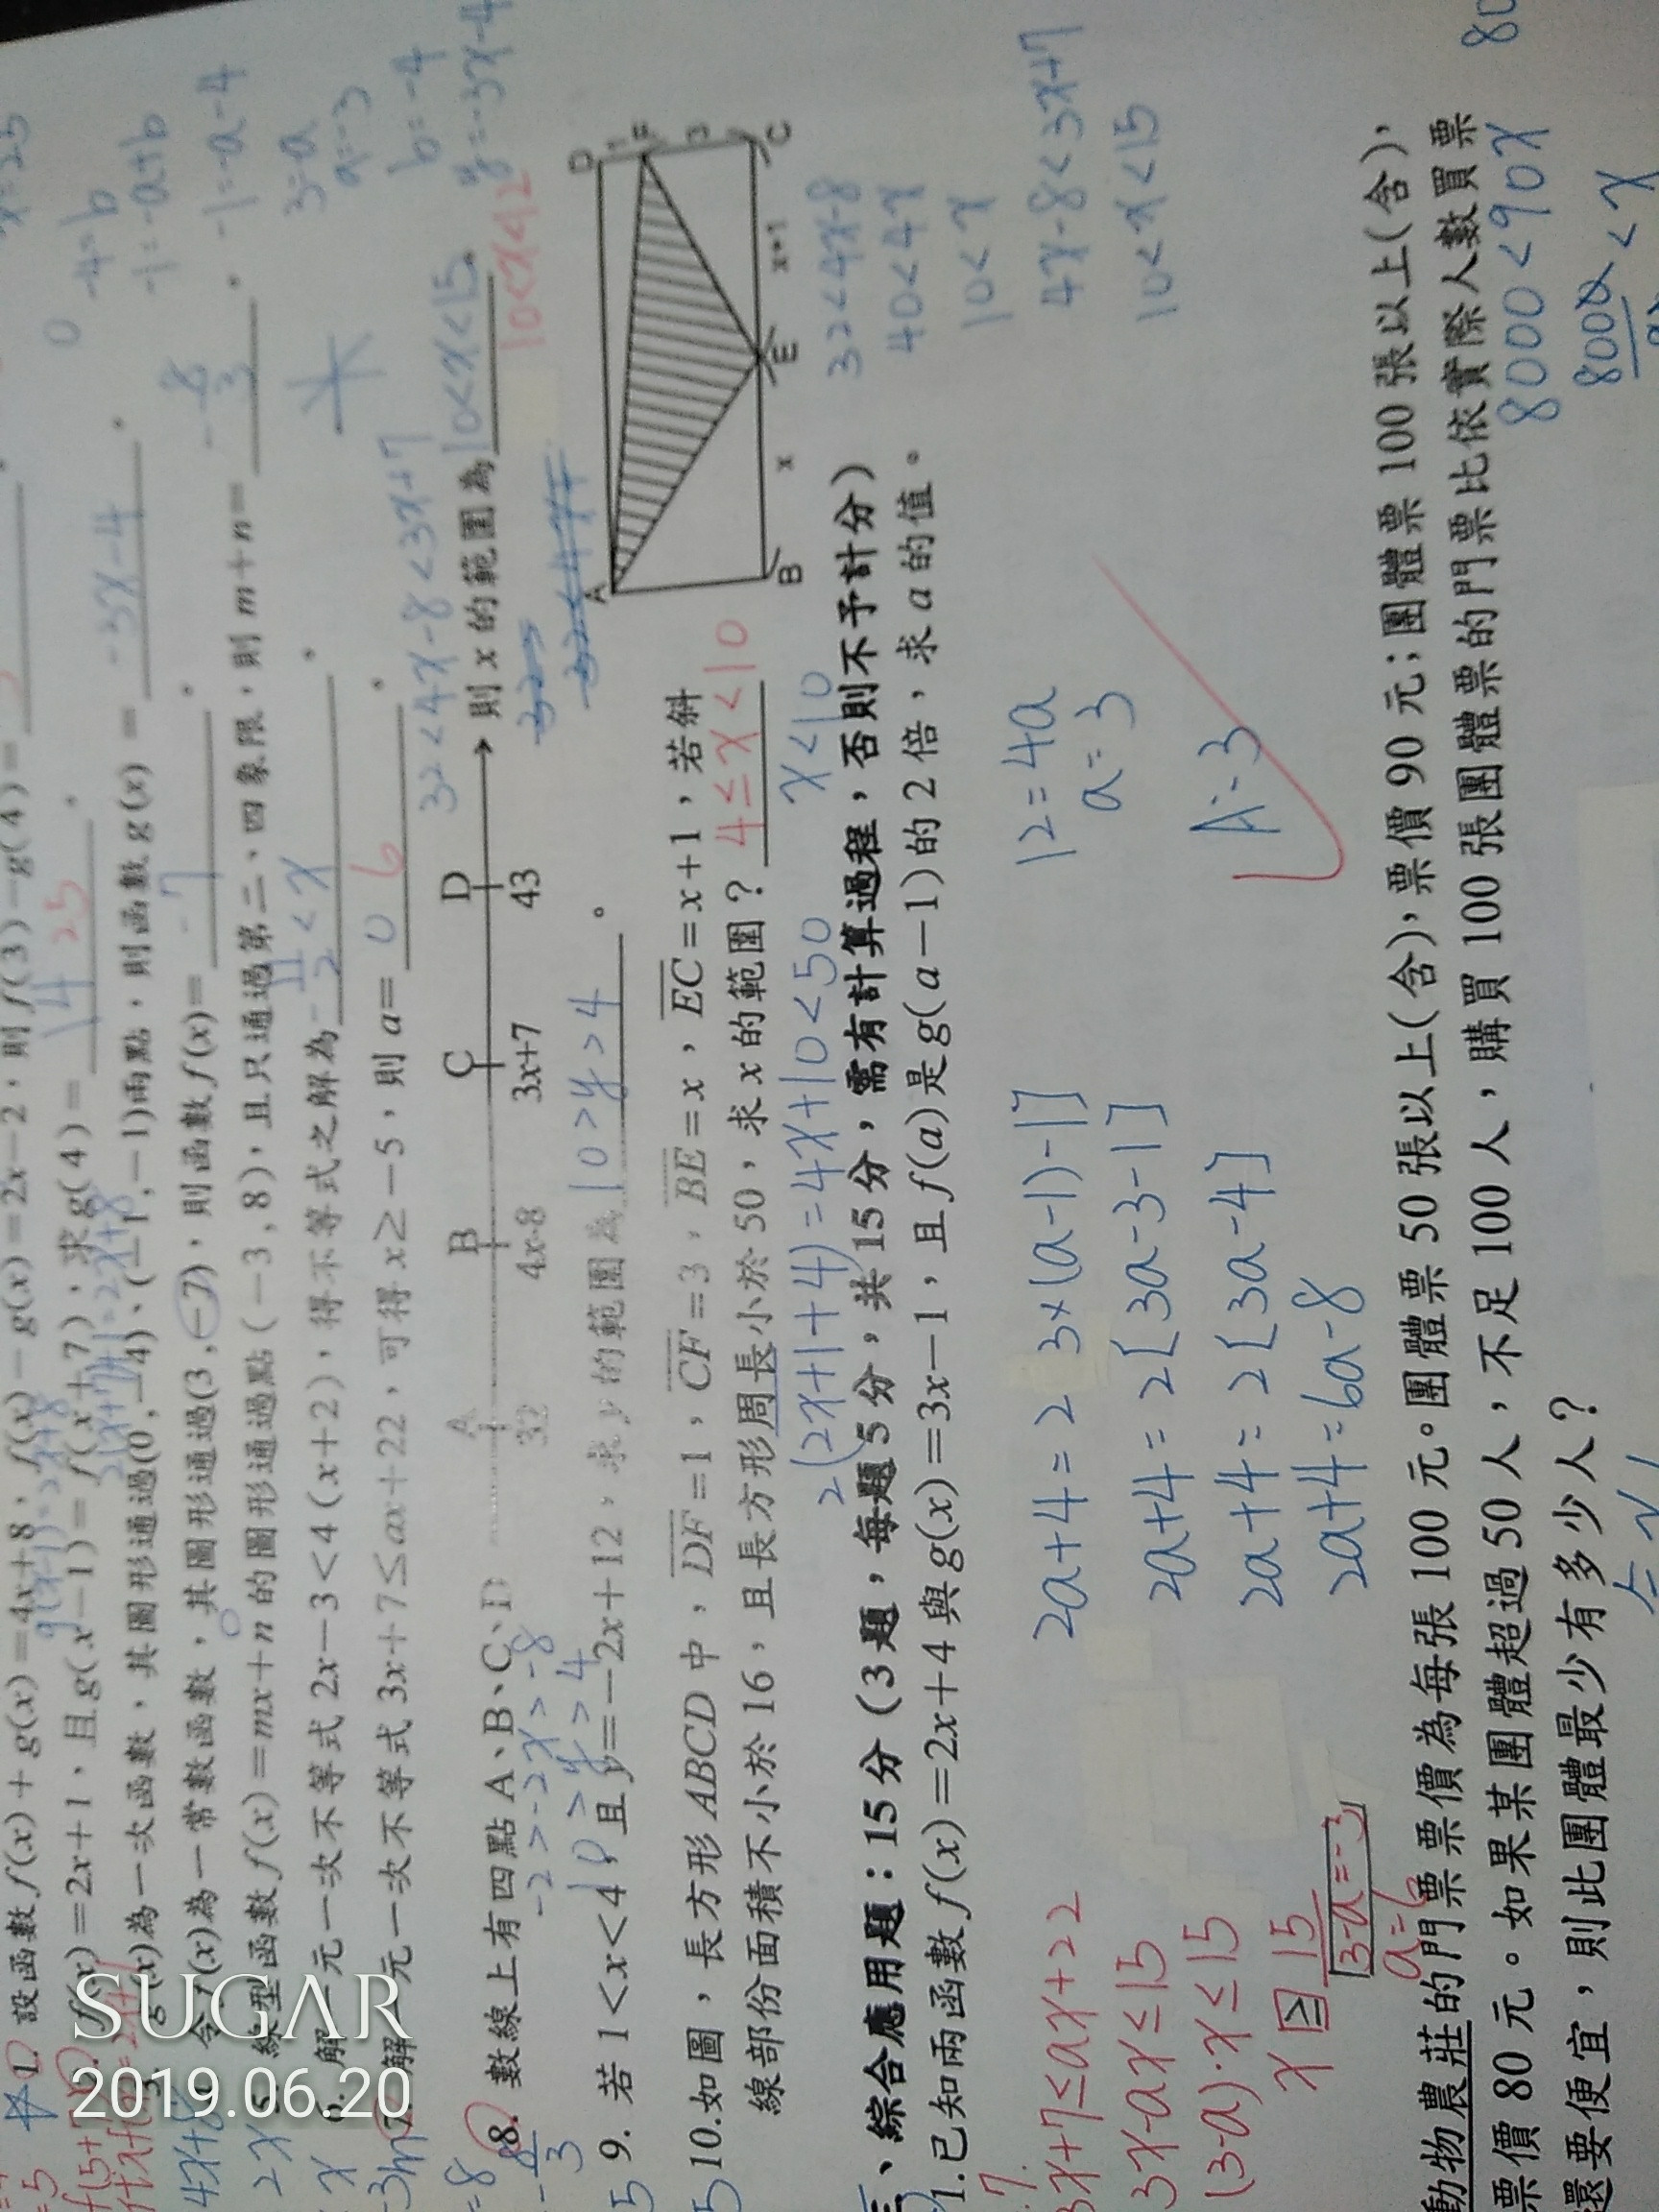 1. 設函數 f(x)+g(x)=4x+8，f(x)-g(x)=2x-2，則 f(3)-g(4)=
f(x)=2x+1，且 g(x-1)=f(x+7)，求 g(4)=
14 25
g(x)為一次函數，其圖形通過(0,-4)、(-1,-1)兩點，則函數 g(x)=
-3x-4
令 f(x)為一常數函數，其圖形通過(3,-7)，則函數 f(x)=
-7
線型函數 f(x)=mx+n 的圖形通過點(-3,8)，且只通過第二、四象限，則 m+n=
-8/3
解一元一次不等式 2x-3<4(x+2)，得不等式之解為
-11/2<x
解一元一次不等式 3x+7≤ax+22，可得 x≥-5，則 a=
0 6
8. 數線上有四點 A、B、C、D
A B C D
32 4x-8 3x+7 43
則 x 的範圍為
10<x<15
10<x<12
32<4x-8<3x+7
9. 若 1<x<4 且 y=-2x+12，求 y 的範圍為
10>y>4
-2>-2x>-8
10>y>4
10.如圖，長方形 ABCD 中，DF=1，CF=3，BE=x，EC=x+1，若斜
線部份面積不小於 16，且長方形周長小於 50，求 x 的範圍？
4≤x<10
2(2x+1+4)=4x+10<50
x<10
A B C D E F
x x+1 1 3
32<4x-8
40<4x
10<x
4x-8<3x+7
10<x<15
-4=b
-1=-a+b
-1=-a-4
3=-a
a=-3
b=-4
y=-3x-4
三、綜合應用題：15 分（3 題，每題 5 分，共 15 分，需有計算過程，否則不予計分）
1.已知兩函數 f(x)=2x+4 與 g(x)=3x-1，且 f(a)是 g(a-1)的 2 倍，求 a 的值。
2a+4=2 3×(a-1)-1]
2a+4=2[3a-3-1]
2a+4=2[3a-4]
2a+4=6a-8
12=4a
a=3
A:3
7.
3x+7≤ax+22
3x-ax≤15
(3-a)·x≤15
x≥15/3-a=-3
a=6
動物農莊的門票票價為每張 100 元。團體票 50 張以上(含)，票價 90 元；團體票 100 張以上(含)，
票價 80 元。如果某團體超過 50 人，不足 100 人，購買 100 張團體票的門票比依實際人數買票
還要便宜，則此團體最少有多少人？
8000<90x
SUGAR
2019.06.20